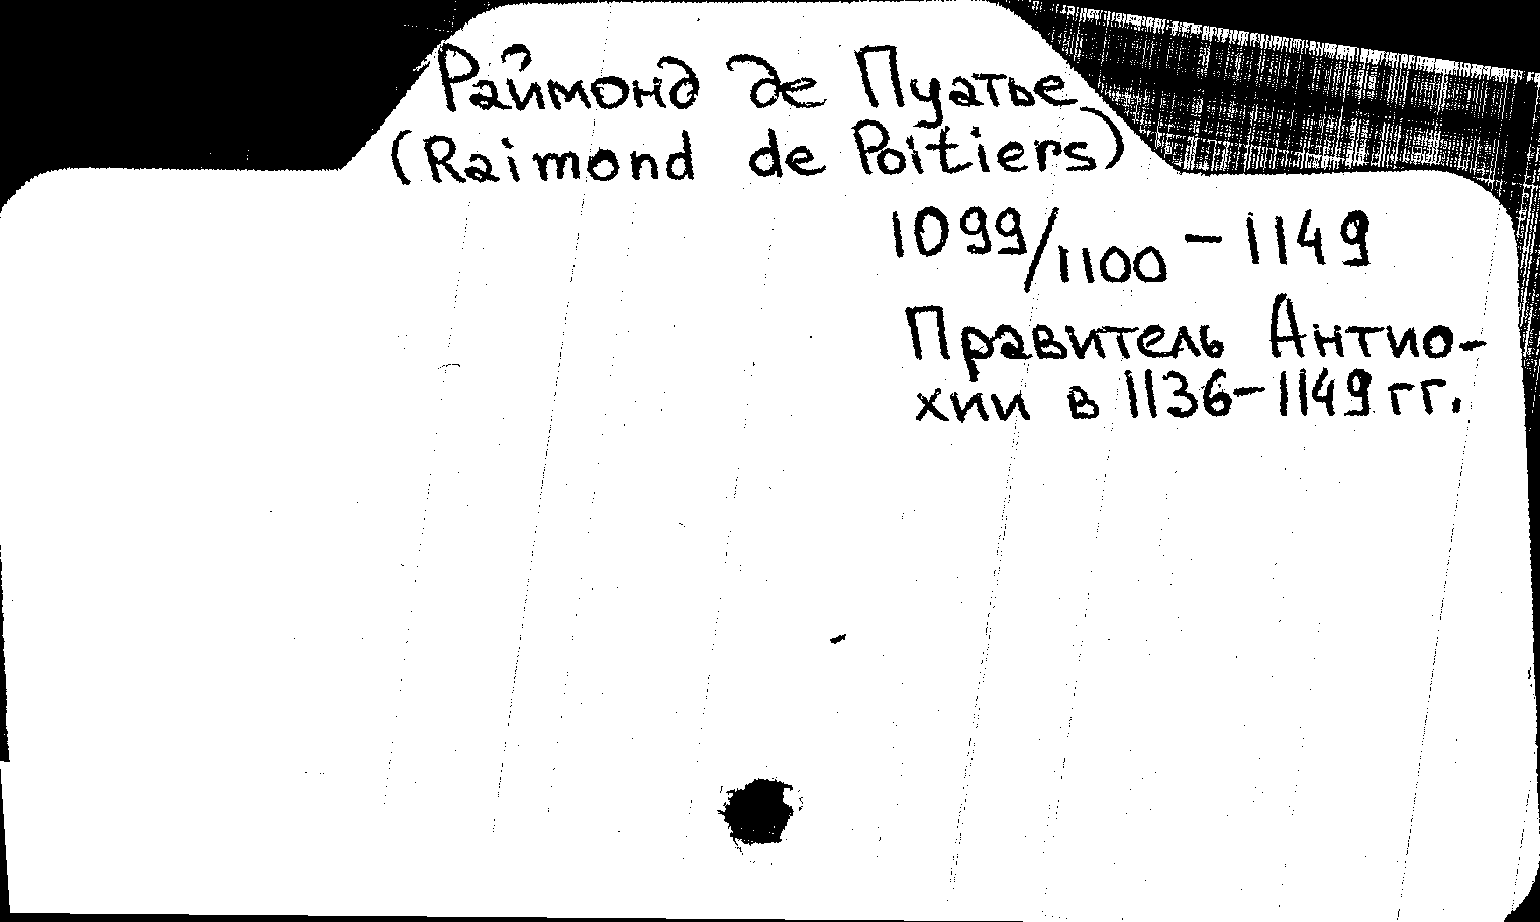 Раймонд де Пуатье
(Raimond de Poitiers)
1099/1100 - 1149
Правитель Антио-
хии в 1136-1149 гг.